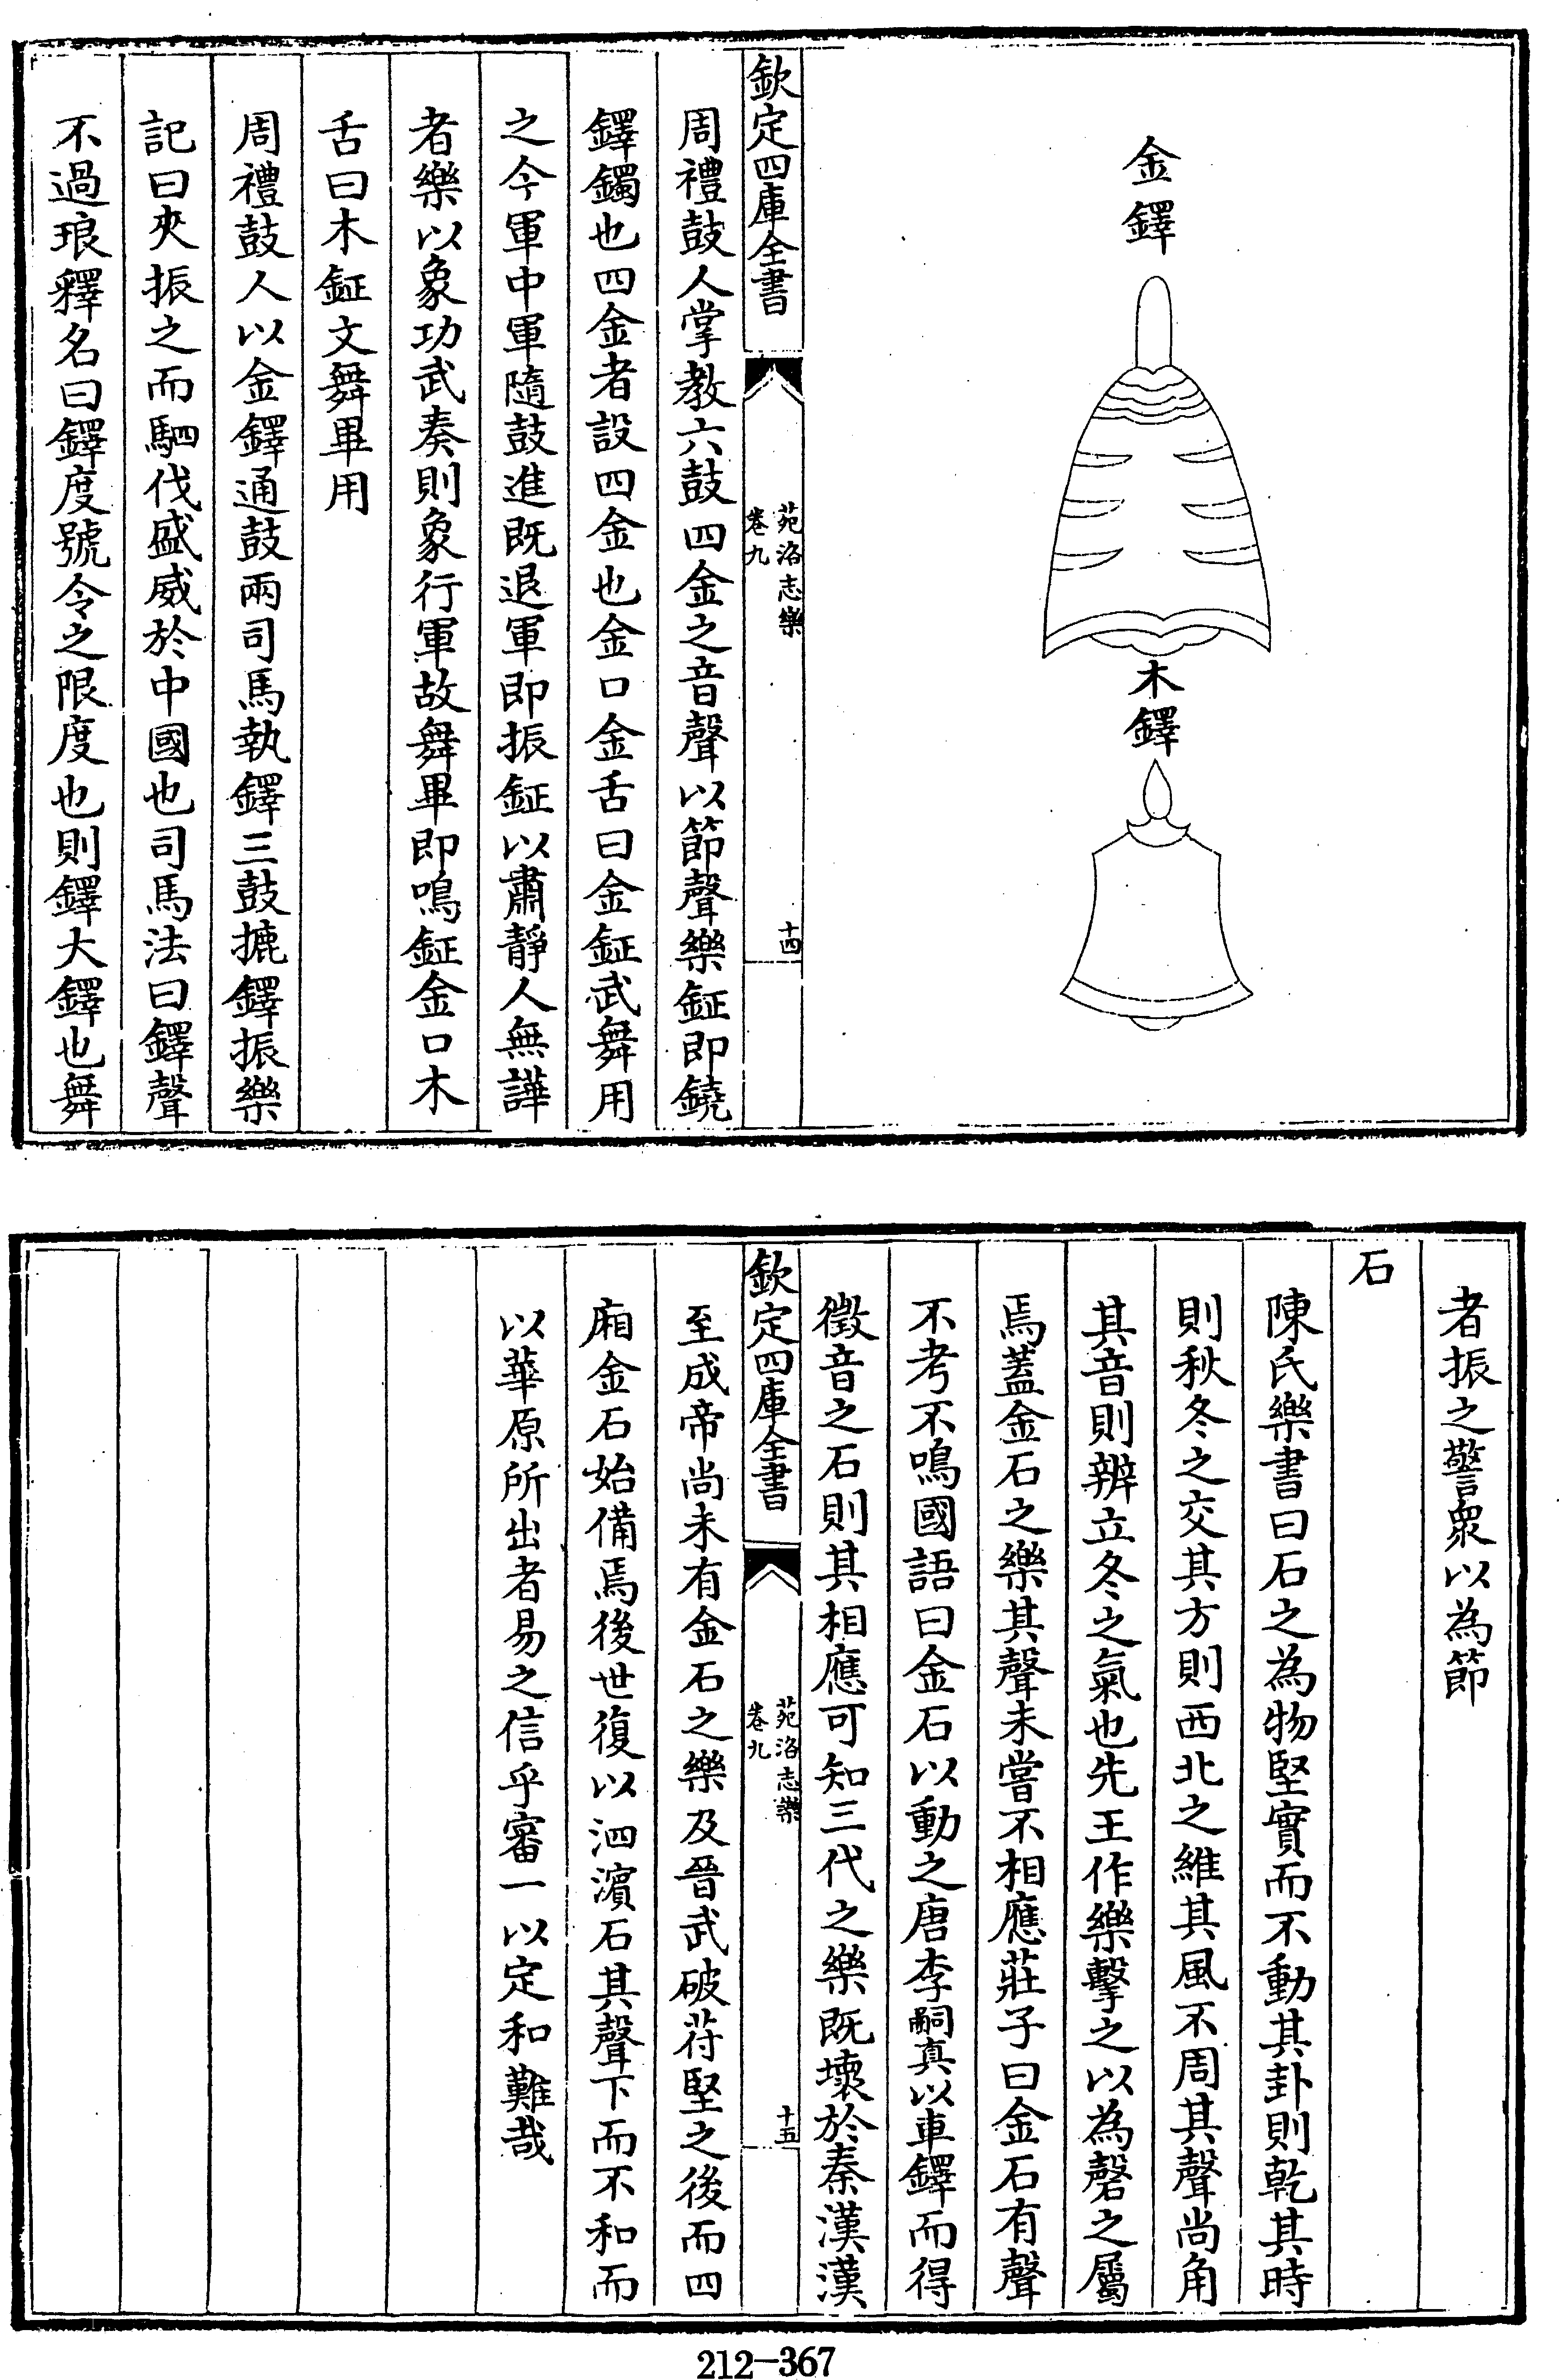 金鐸
木鐸
欽定四庫全書
苑洛志樂
卷九
十四
周禮鼓人掌教六鼓四金之音聲以節聲樂鉦即鐃
鐸鐲也四金者設四金也金口金舌曰金鉦武舞用
之今軍中軍隨鼓進既退軍即振鉦以肅靜人無譁
者樂以象功武奏則象行軍故舞畢即鳴鉦金口木
舌曰木鉦文舞畢用
周禮鼓人以金鐸通鼓兩司馬執鐸三鼓摝鐸振樂
記曰夾振之而駟伐盛威於中國也司馬法曰鐸聲
不過琅釋名曰鐸度號令之限度也則鐸大鐸也舞
者振之警衆以為節
石
陳氏樂書曰石之為物堅實而不動其卦則乾其時
則秋冬之交其方則西北之維其風不周其聲尚角
其音則辨立冬之氣也先王作樂擊之以為磬之屬
焉蓋金石之樂其聲未嘗不相應莊子曰金石有聲
不考不鳴國語曰金石以動之唐李嗣真以車鐸而得
徵音之石則其相應可知三代之樂既壞於秦漢漢
欽定四庫全書
苑洛志樂
卷九
十五
至成帝尚未有金石之樂及晉武破苻堅之後而四
廂金石始備焉後世復以泗濱石其聲下而不和而
以華原所出者易之信乎審一以定和難哉
212-367